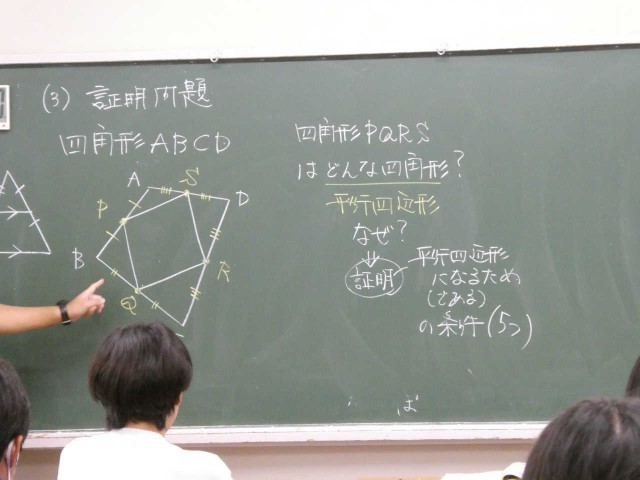 (3) 証明問題
四角形ABCD
A
S
D
P
B
R
Q
四角形PQRS
はどんな四角形?
平行四辺形
なぜ?
証明
平行四辺形
になるため
(である)
の条件(5つ)
ば